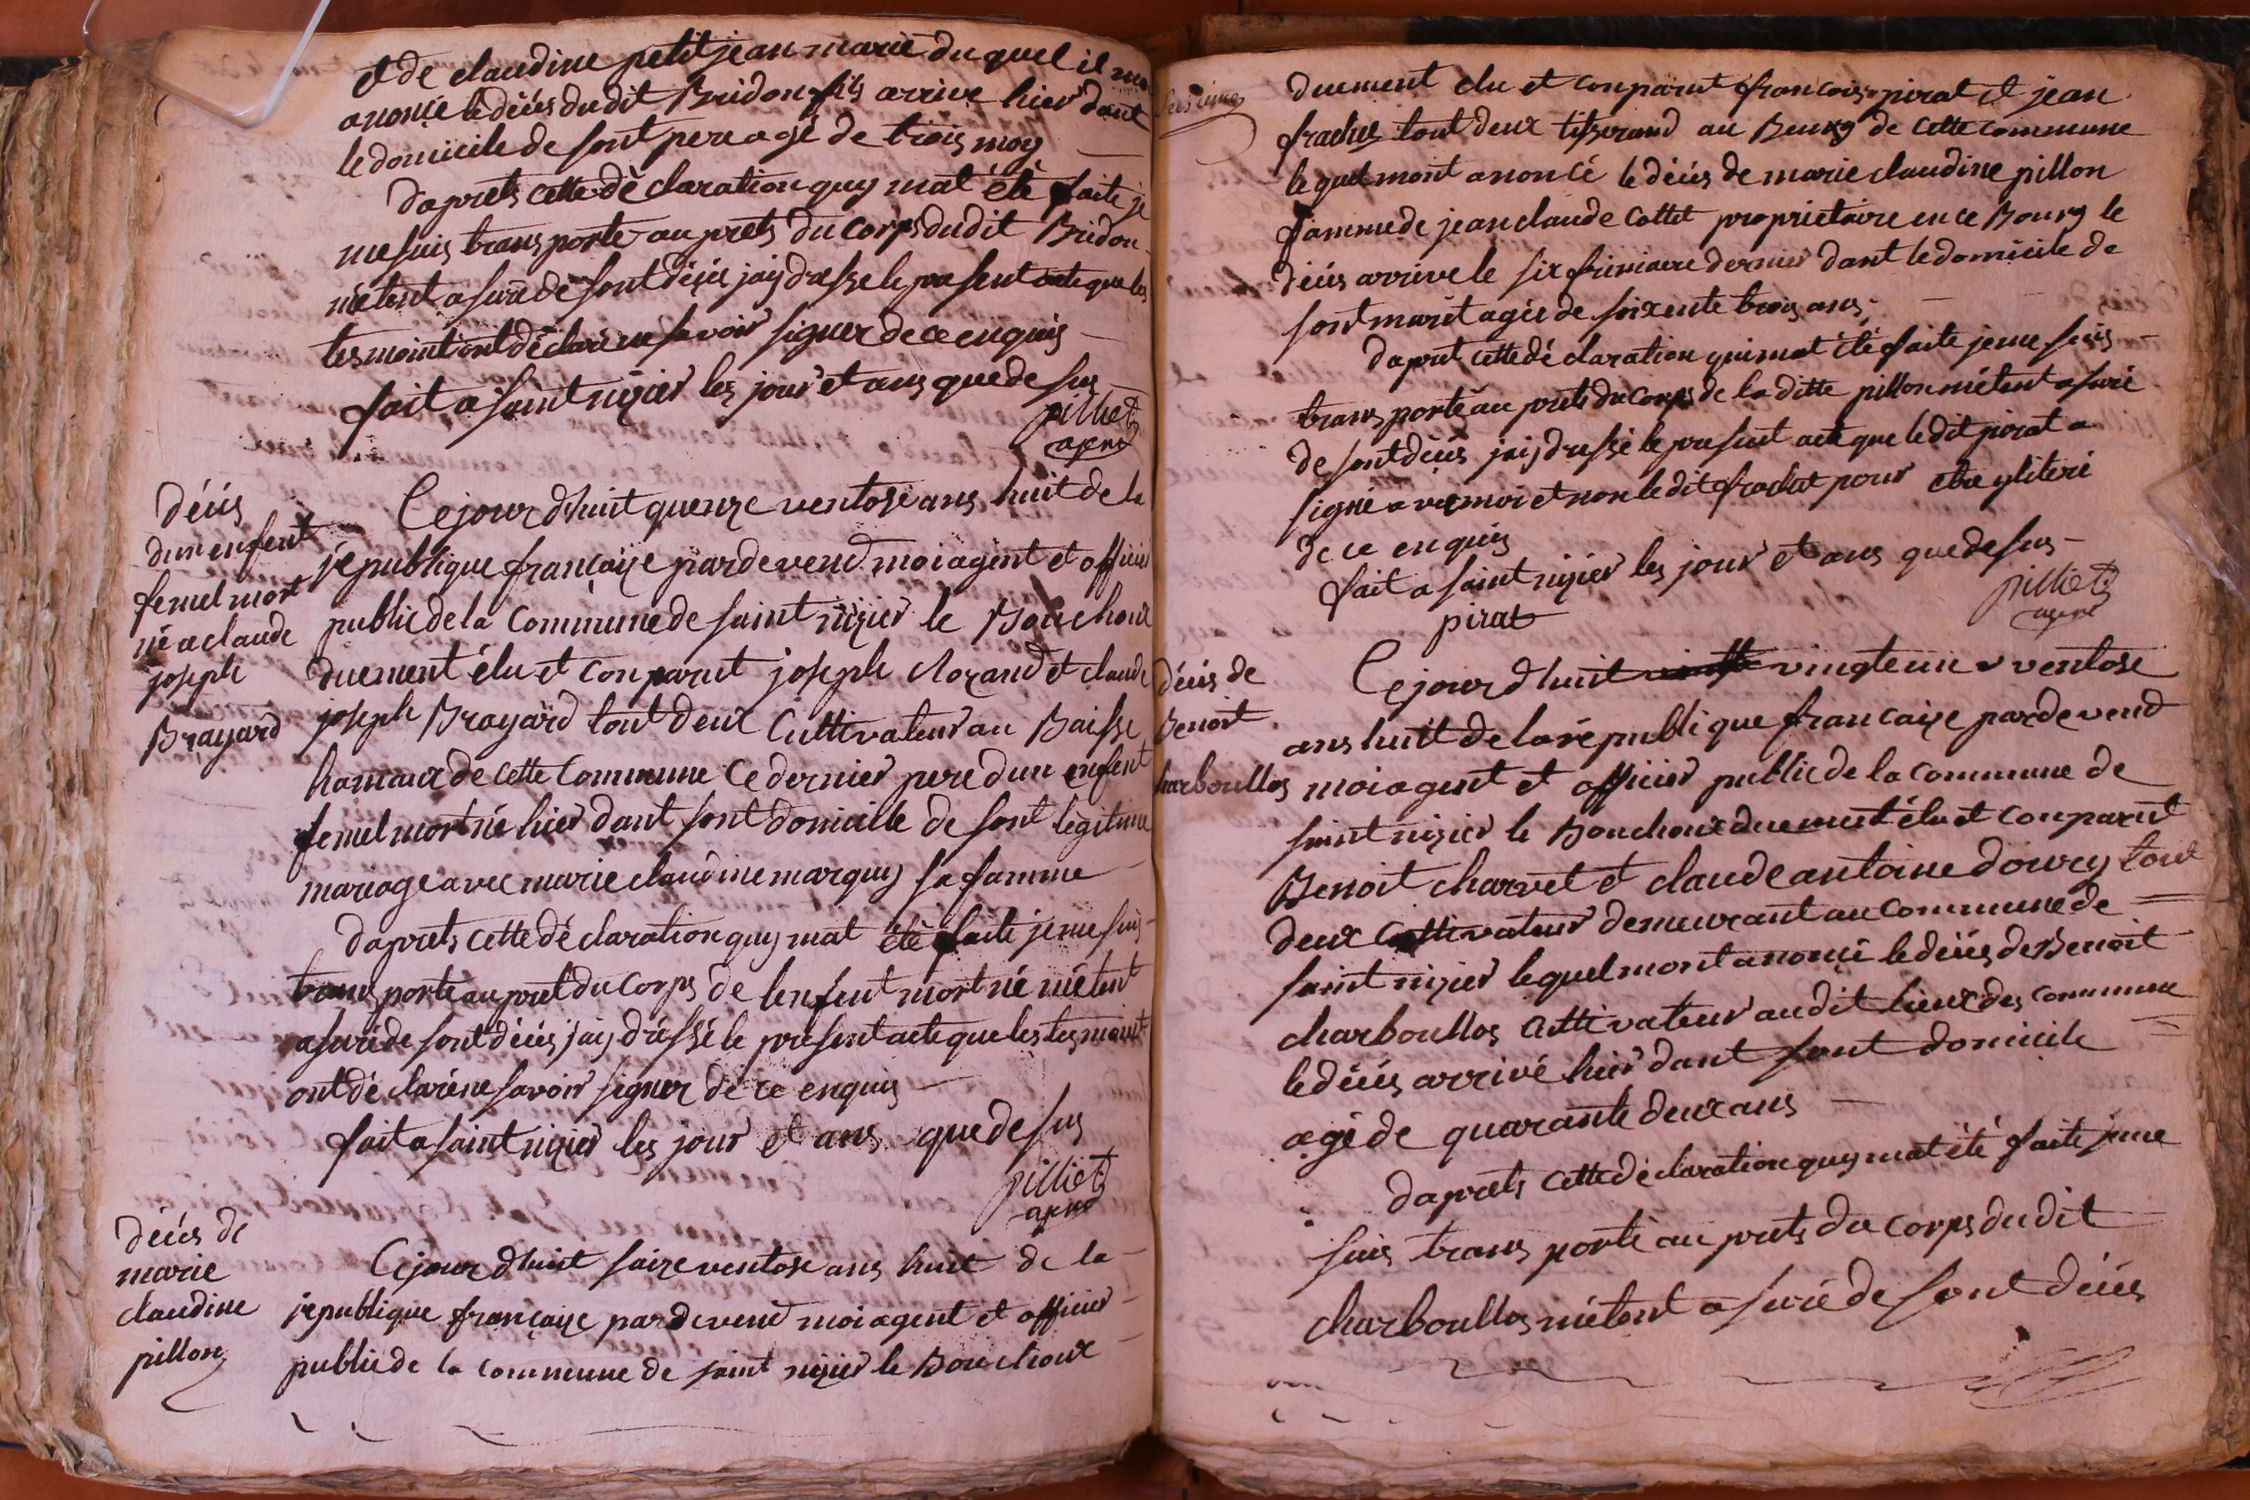 et de claudine petit jean marié du quel il mon
anoncé le décés dudit Bridon fils arrive hier dant
le domicile de sont pere agé de trois moy
daprets cette dé claration quy mat été faite je
me suis trans porté au prets du corps dudit Bridon
métent asuré de sont décés jay dressé le present acte que les
tesmoint ont déclaré ne savoir signer de ce enquis
fait a saint nizier les jour et ans que de sus
pilliet
agent
décés
dun enfent
femel mort
né a claude
joseph
Brayard
Cejourdhuit quenze ventose ans huit de la
republique françaize pardevend moi agent et officier
public de la Commune de saint nizier le Bouchoux
duement élu et conparut joseph clozand et claude
joseph Brayard tout deux Cultivateur au Baisse
hamaux de cette Commune Ce dernier pere dun enfent
femel mort né hier dant sont domicille de sont légitime
mariage avec marie claudine marquis sa famme
daprets cette dé claration quy mat été faite je me suis
trans porté au pret du corps de lenfent mort né métent
asuré de sont décés jay dréssé le present acte que les tesmoint
ont dé claré ne savoir signer de ce enquis
fait a saint nizier les jour et ans que de sus
pilliet
agent
décés de
marie
claudine
pillon
Cejourdhuit saize ventose ans huit de la
republique françaize pardevend moi agent et officier
public de la commune de saint nizier le Bouchoux
duement elu et conparut francois pirat et jean
frachet tout deux tisserand au Bourg de cette commune
lequel mont anoncé le décés de marie claudine pillon
famme de jean claude Cottet proprietaire en ce Bourg le
décés arrive le six frimaire dernier dant le domicile de
sont marit agée de soixente trois ans
dapret cette dé claration qui mat été faite je me suis
trans porté au prets du corps de la ditte pillon métent asuré
de sont décés jay dressé le present acte que ledit pirat a
signé avec moi et non ledit frachet pour etre yliteré
de ce enquis
fait a saint nizier les jour et ans que de sus
pirat
pilliet
agent
décés de
Benoit
charboullos
Cejourdhuit vingte un ventose
ans huit de la république françaize pardevend
moi agent et officier public de la commune de
saint nizier le Bouchoux duement élu et conparut
Benoit charvet et claude antoine dourcy tout
deux Cultivateur demeurant au commune de
saint nizier lequel mont anoncé le décés de Benoit
charboullos Cultivateur audit lieux des commune
le décés arrivé hier dant sont domicile
agé de quarante deux ans
daprets cette dé claration quy mat été faite je me
suis trans porté au prets du corps dudit
charboullos métent asuré de sont décés